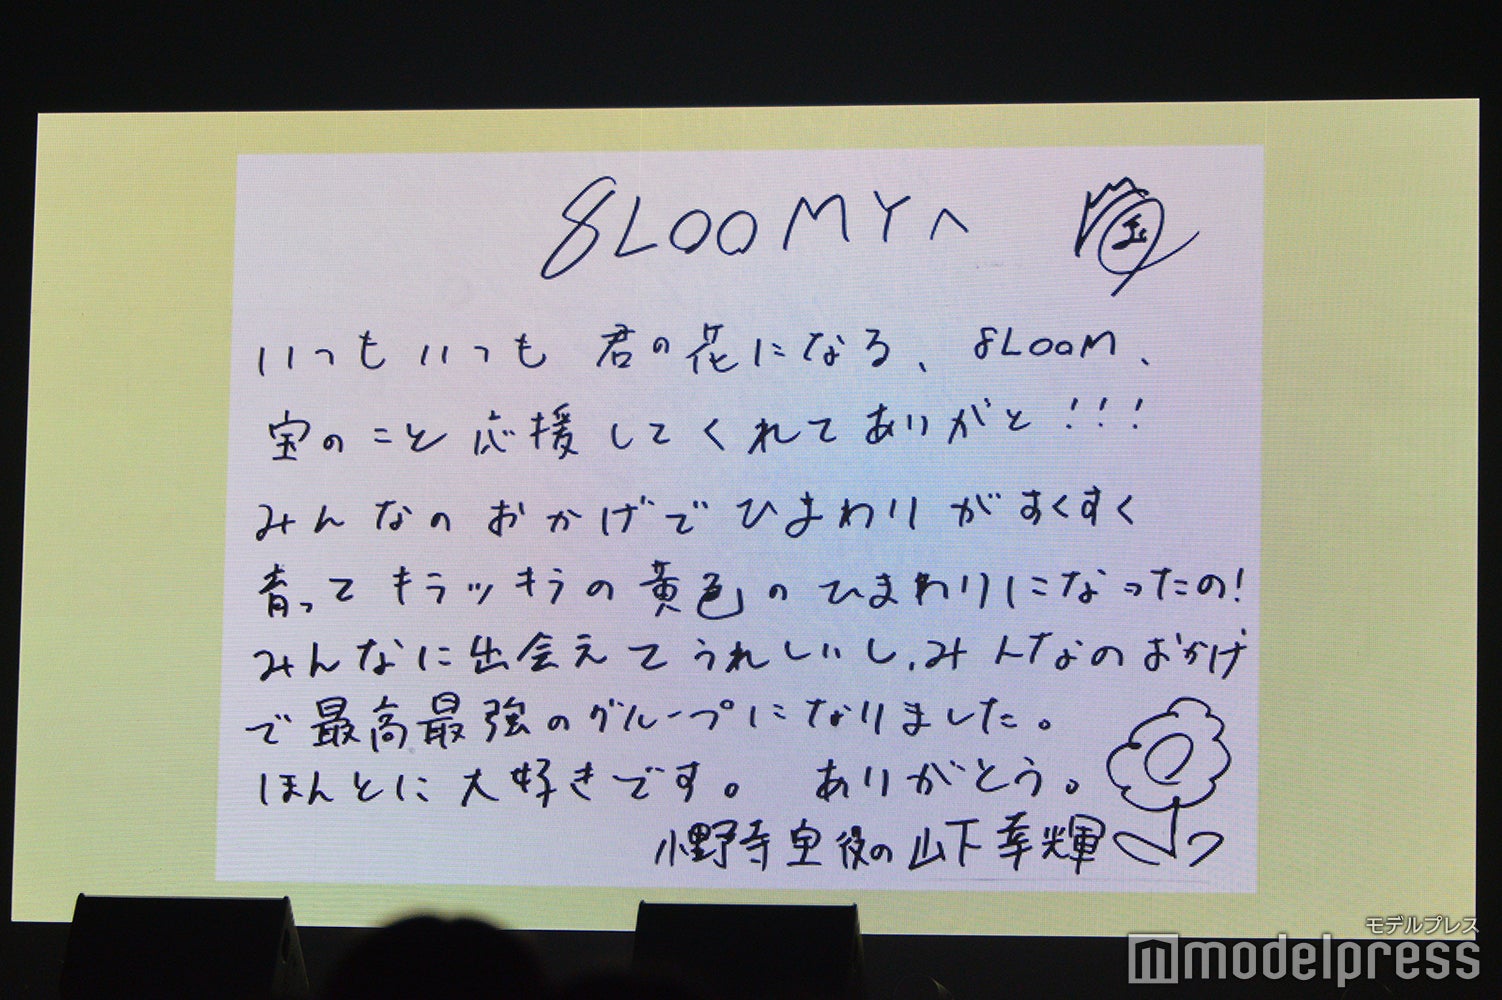 8LOOMYへ
宝
いつもいつも 君の花になる、8LOOM、
宝のこと応援してくれてありがと!!!
みんなのおかげでひまわりがすくすく
育ってキラッキラの黄色のひまわりになったの!
みんなに出会えてうれしいし、みんなのおかげ
で最高最強のグループになりました。
ほんとに大好きです。 ありがとう。
小野寺宝役の山下幸輝
モデルプレス
modelpress